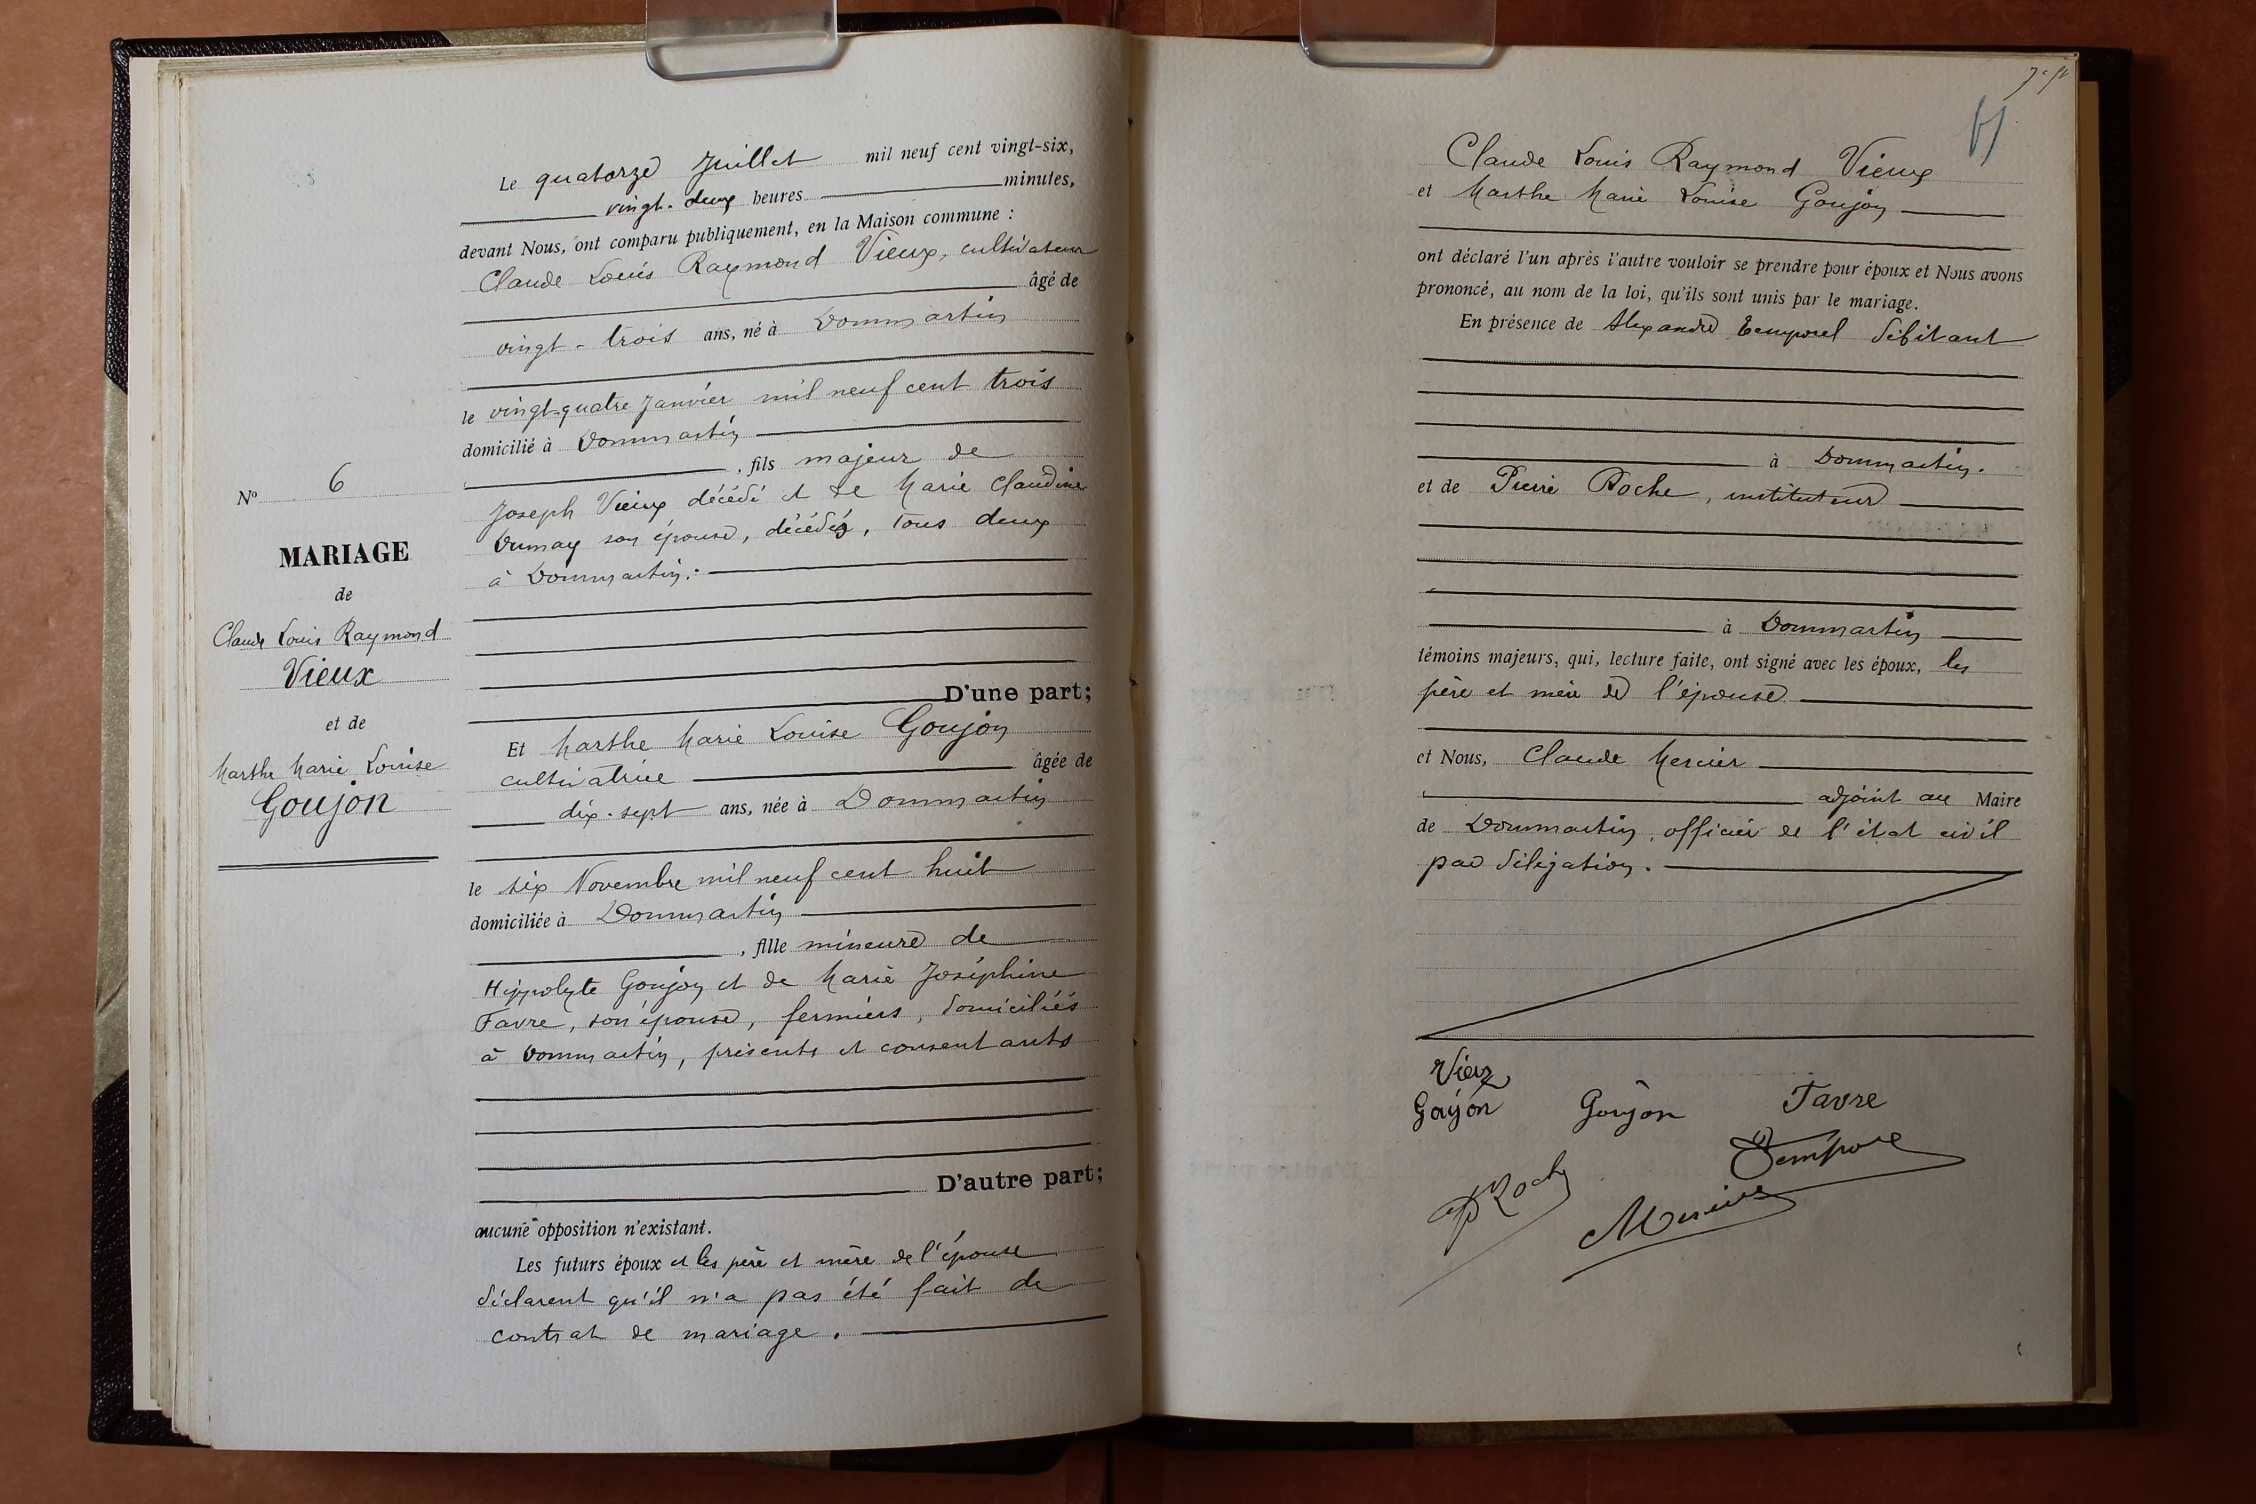 Le quatorze Juillet mil neuf cent vingt-six,
vingt-deux heures minutes,
devant Nous, ont comparu publiquement, en la Maison commune :
Claude Louis Raymond Vieux, cultivateur
âgé de
vingt-trois ans, né à Dommartin
le vingt-quatre Janvier mil neuf cent trois
domicilié à Dommartin
, fils majeur de
Joseph Vieux décédé et de Marie Claudine
Dumay son épouse, décédés, tous deux
à Dommartin.
D'une part;
Et Marthe Marie Louise Goujon
cultivatrice âgée de
dix-sept ans, née à Dommartin
le six Novembre mil neuf cent huit
domiciliée à Dommartin
, fille mineure de
Hippolyte Goujon et de Marie Joséphine
Favre, son épouse, fermiers, domiciliés
à Dommartin, présents et consentants
D'autre part;
aucune opposition n'existant.
Les futurs époux et les père et mère de l'épouse
déclarent qu'il n'a pas été fait de
contrat de mariage.
No 6
MARIAGE
de
Claude Louis Raymond
Vieux
et de
Marthe Marie Louise
Goujon
Claude Louis Raymond Vieux
et Marthe Marie Louise Goujon
ont déclaré l'un après l'autre vouloir se prendre pour époux et Nous avons
prononcé, au nom de la loi, qu'ils sont unis par le mariage.
En présence de Alexandre Temporel débitant
à Dommartin.
et de Pierre Roche, instituteur
à Dommartin
témoins majeurs, qui, lecture faite, ont signé avec les époux, les
père et mère de l'épouse
et Nous, Claude Mercier
adjoint au Maire
de Dommartin, officier de l'état civil
par délégation.
Vieux
Goujon Goujon Favre
P Roche Temporel
Mercier